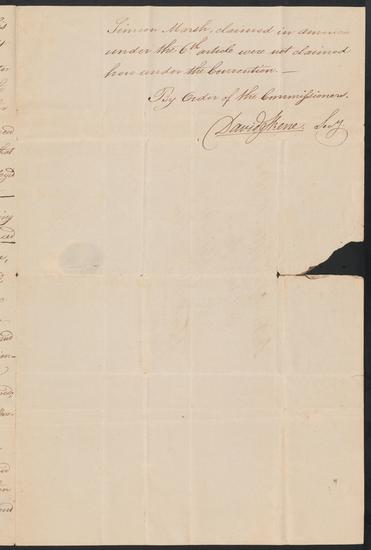 Simeon Marsh, claimed in america
under the 6th article were not claimed
here under the Convention. —
By Order of the Commissioners.
David Skene. Secy